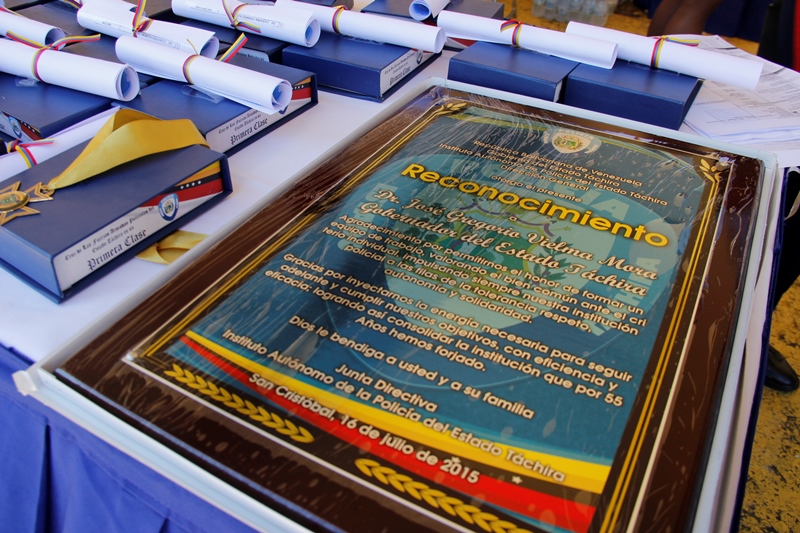 República Bolivariana de Venezuela
Gobernación del Estado Táchira
Instituto Autónomo de Policía del Estado Táchira
Dirección General
otorga el presente
Reconocimiento
Dr. José Gregorio Vielma Mora
Gobernador del Estado Táchira
Agradecimiento por permitirnos el honor de formar un
equipo de trabajo, valorando el bien común ante el
individual, impulsando siempre nuestra institución
policial a las filas de la tolerancia, respeto,
autonomía y solidaridad.
Gracias por inyectarnos la energía necesaria para seguir
adelante y cumplir nuestros objetivos, con eficiencia y
eficacia; logrando así consolidar la institución que por 55
Años hemos forjado.
Dios le bendiga a usted y a su familia
Junta Directiva
Instituto Autónomo de la Policía del Estado Táchira
San Cristóbal, 16 de julio de 2015
Cruz de Las Fuerzas Armadas Policiales del
Estado Táchira en su
Primera Clase
Estado Táchira en su
Primera Clase
Primera Clase